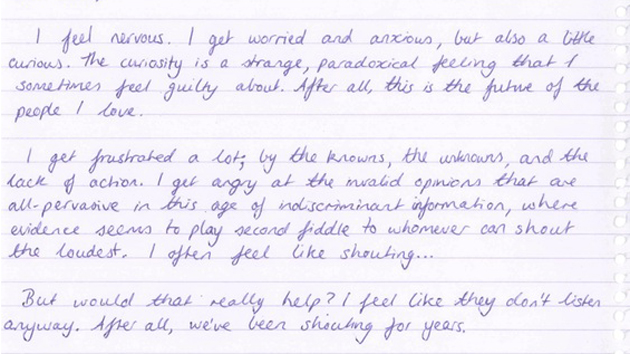 I feel nervous. I get worried and anxious, but also a little
curious. The curiosity is a strange, paradoxical feeling that I
sometimes feel guilty about. After all, this is the future of the
people I love.
I get frustrated a lot; by the knowns, the unknowns, and the
lack of action. I get angry at the invalid opinions that are
all-pervasive in this age of indiscriminant information, where
evidence seems to play second fiddle to whomever can shout
the loudest. I often feel like shouting...
But would that really help? I feel like they don't listen
anyway. After all, we've been shouting for years.